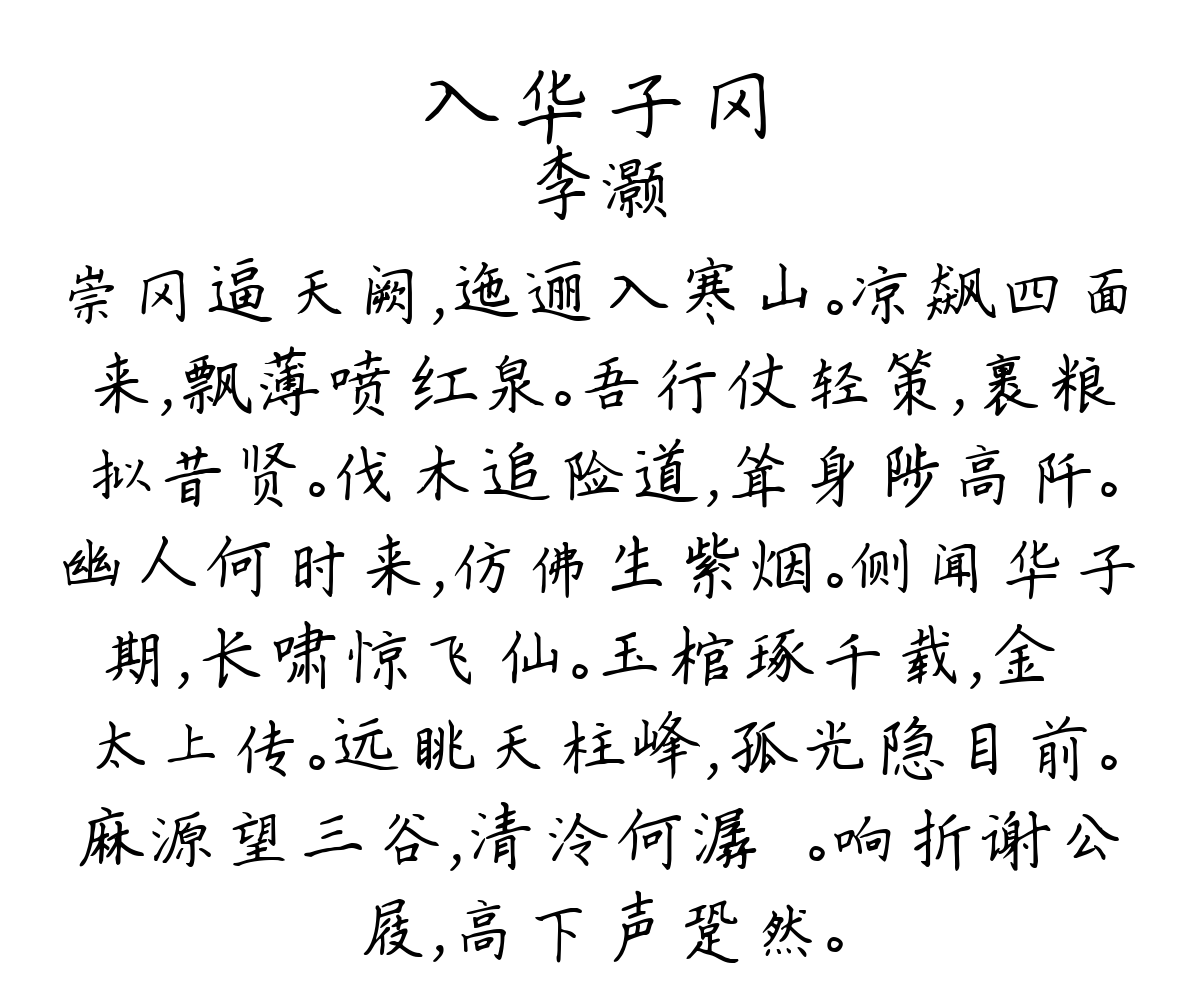 入华子冈
李灏
崇冈逼天阙,迤逦入寒山。凉飙四面
来,飘薄喷红泉。吾行仗轻策,裹粮
拟昔贤。伐木追险道,耸身陟高阡。
幽人何时来,仿佛生紫烟。侧闻华子
期,长啸惊飞仙。玉棺琢千载,金
太上传。远眺天柱峰,孤光隐目前。
麻源望三谷,清泠何潺 。响折谢公
屐,高下声跫然。